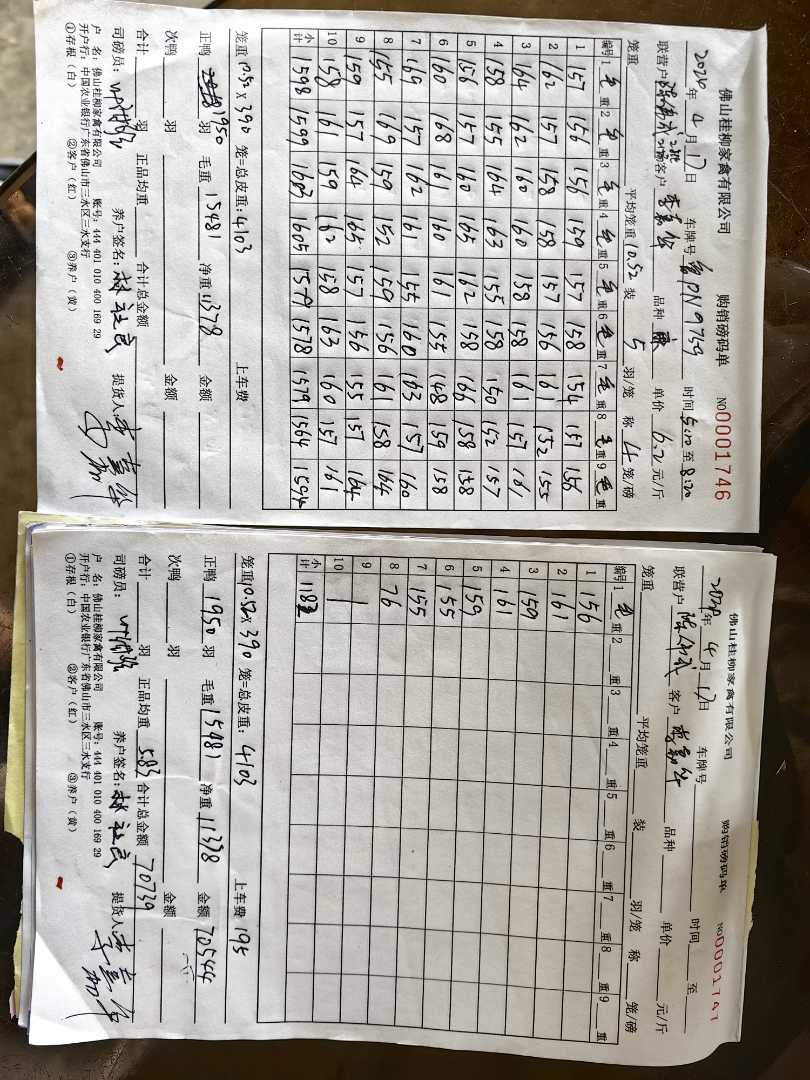 佛山桂柳家禽有限公司 购销磅码单 NO0001746
2026年4月17日 车牌号 粤PN9759 时间5:20至8:20
联营户 陈伟武 客户 李嘉华 品种 单价 6.2 元/斤
笼重 平均笼重 10.52 装 5 羽/笼 称 4 笼/磅
编号 1 毛重 2 毛重 3 毛重 4 毛重 5 毛重 6 毛重 7 毛重 8 毛重 9 毛重
1 157 156 156 159 157 158 154 157 156
2 162 157 158 158 157 156 161 152 155
3 164 162 160 160 158 158 161 157 161
4 158 155 164 163 155 158 150 152 157
5 156 157 160 165 162 158 166 158 158
6 160 168 161 160 161 155 148 159 158
7 169 157 162 161 155 160 163 157 160
8 155 169 159 152 159 156 161 158 164
9 159 157 164 165 157 156 155 157 164
10 158 161 159 162 158 163 160 157 161
小计 1598 1599 1603 1605 1579 1578 1579 1564 1594
笼重 10.52 X 390 笼=总皮重: 4103 上车费
正鸭 1950 羽 毛重 15481 净重 11378 金额
次鸭 羽 金额
合计 羽 正品均重 合计总金额
司磅员: 养户签名: 林社成 提货人: 李嘉华
户 名: 佛山桂柳家禽有限公司 账号: 444 401 010 400 169 29
开户行: 中国农业银行广东省佛山市三水区三水支行
①存根（白） ②客户（红） ③养户（黄）
佛山桂柳家禽有限公司 购销磅码单 NO0001747
2026年4月17日 车牌号 时间 至
联营户 陈伟武 客户 李嘉华 品种 单价 元/斤
笼重 平均笼重 装 羽/笼 称 笼/磅
编号 1 毛重 2 重 3 重 4 重 5 重 6 重 7 重 8 重 9 重
1 156
2 161
3 159
4 161
5 159
6 155
7 155
8 76
9
10
小计 1182
笼重 10.52 X 390 笼=总皮重: 4103 上车费 195
正鸭 1950 羽 毛重 15481 净重 11378 金额 70544
次鸭 羽 金额
合计 羽 正品均重 5.83 合计总金额 70739
司磅员: 养户签名: 林社成 提货人: 李嘉华
户 名: 佛山桂柳家禽有限公司 账号: 444 401 010 400 169 29
开户行: 中国农业银行广东省佛山市三水区三水支行
①存根（白） ②客户（红） ③养户（黄）